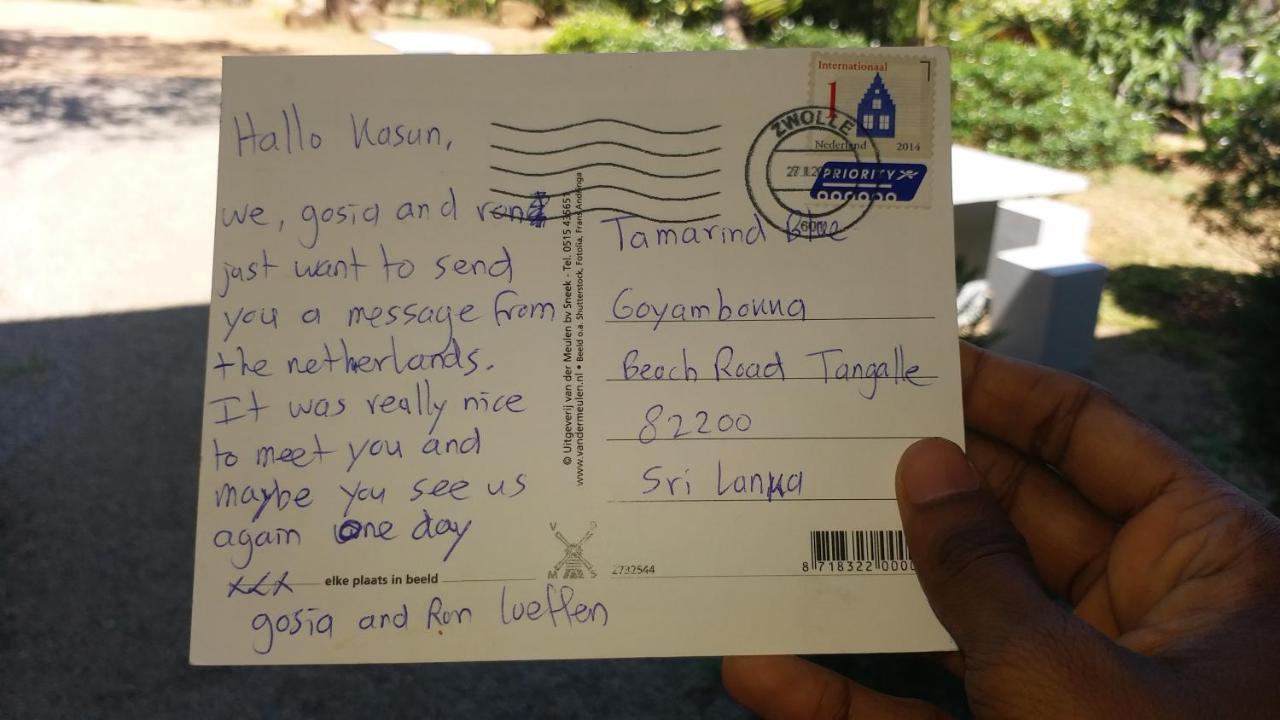 Hallo Kasun,
we, gosia and ron
just want to send
you a message from
the netherlands.
It was really nice
to meet you and
maybe you see us
again One day
xxx
gosia and Ron
elke plaats in beeld
© Uitgeverij van der Meulen bv Sneek - Tel. 0515
www.vandermeulen.nl • Beeld o.a. Shutterstock, Fotolia, Frans Andringa
V D
M S
2732544
Internationaal
1
Nederland 2014
PRIORITY
ZWOLLE
Tamarind Blue
Goyambokka
Beach Road Tangalle
82200
Sri Lanka
8 718322 0000